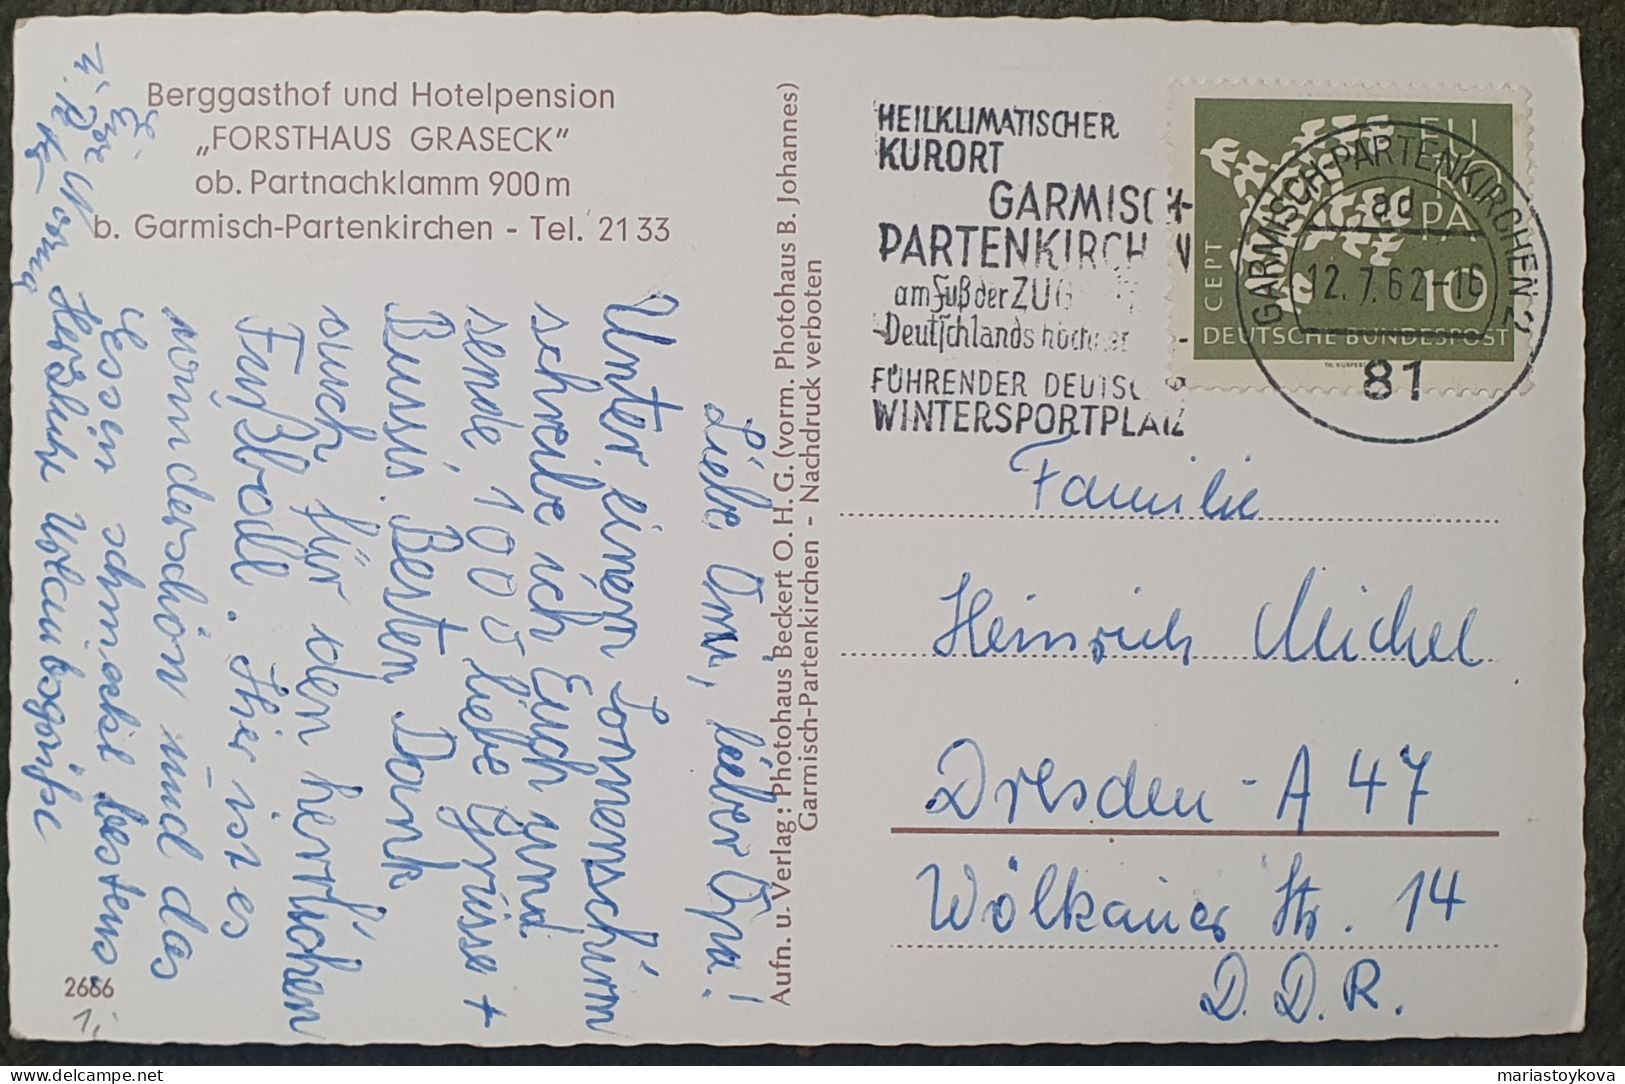 Berggasthof und Hotelpension
„FORSTHAUS GRASECK”
ob. Partnachklamm 900 m
b. Garmisch-Partenkirchen - Tel. 21 33
Liebe Omi, lieber Opa!
Unter einem Sonnenschirm
schreibe ich Euch und
sende 1000 liebe Grüsse +
Bussi. Besten Dank
auch für den herrlichen
Fußball. Hier ist es
wunderschön und das
Essen schmeckt bestens
Herzlichst
Aufn. u. Verlag: Photohaus Beckert O. H. G. (vorm. Photohaus B. Johannes)
Garmisch-Partenkirchen - Nachdruck verboten
2686
HEILKLIMATISCHER
KURORT
GARMISCH-
PARTENKIRCHEN
am Fuß der ZUG
Deutschlands höchster
FÜHRENDER DEUTSC
WINTERSPORTPLATZ
EUROPA
CEPT
10
DEUTSCHE BUNDESPOST
GARMISCH-PARTENKIRCHEN 2
ad
12.7.62-16
81
Familie
Heinrich Michel
Dresden-A 47
Wölkauer Str. 14
D.D.R.
mariastoykova